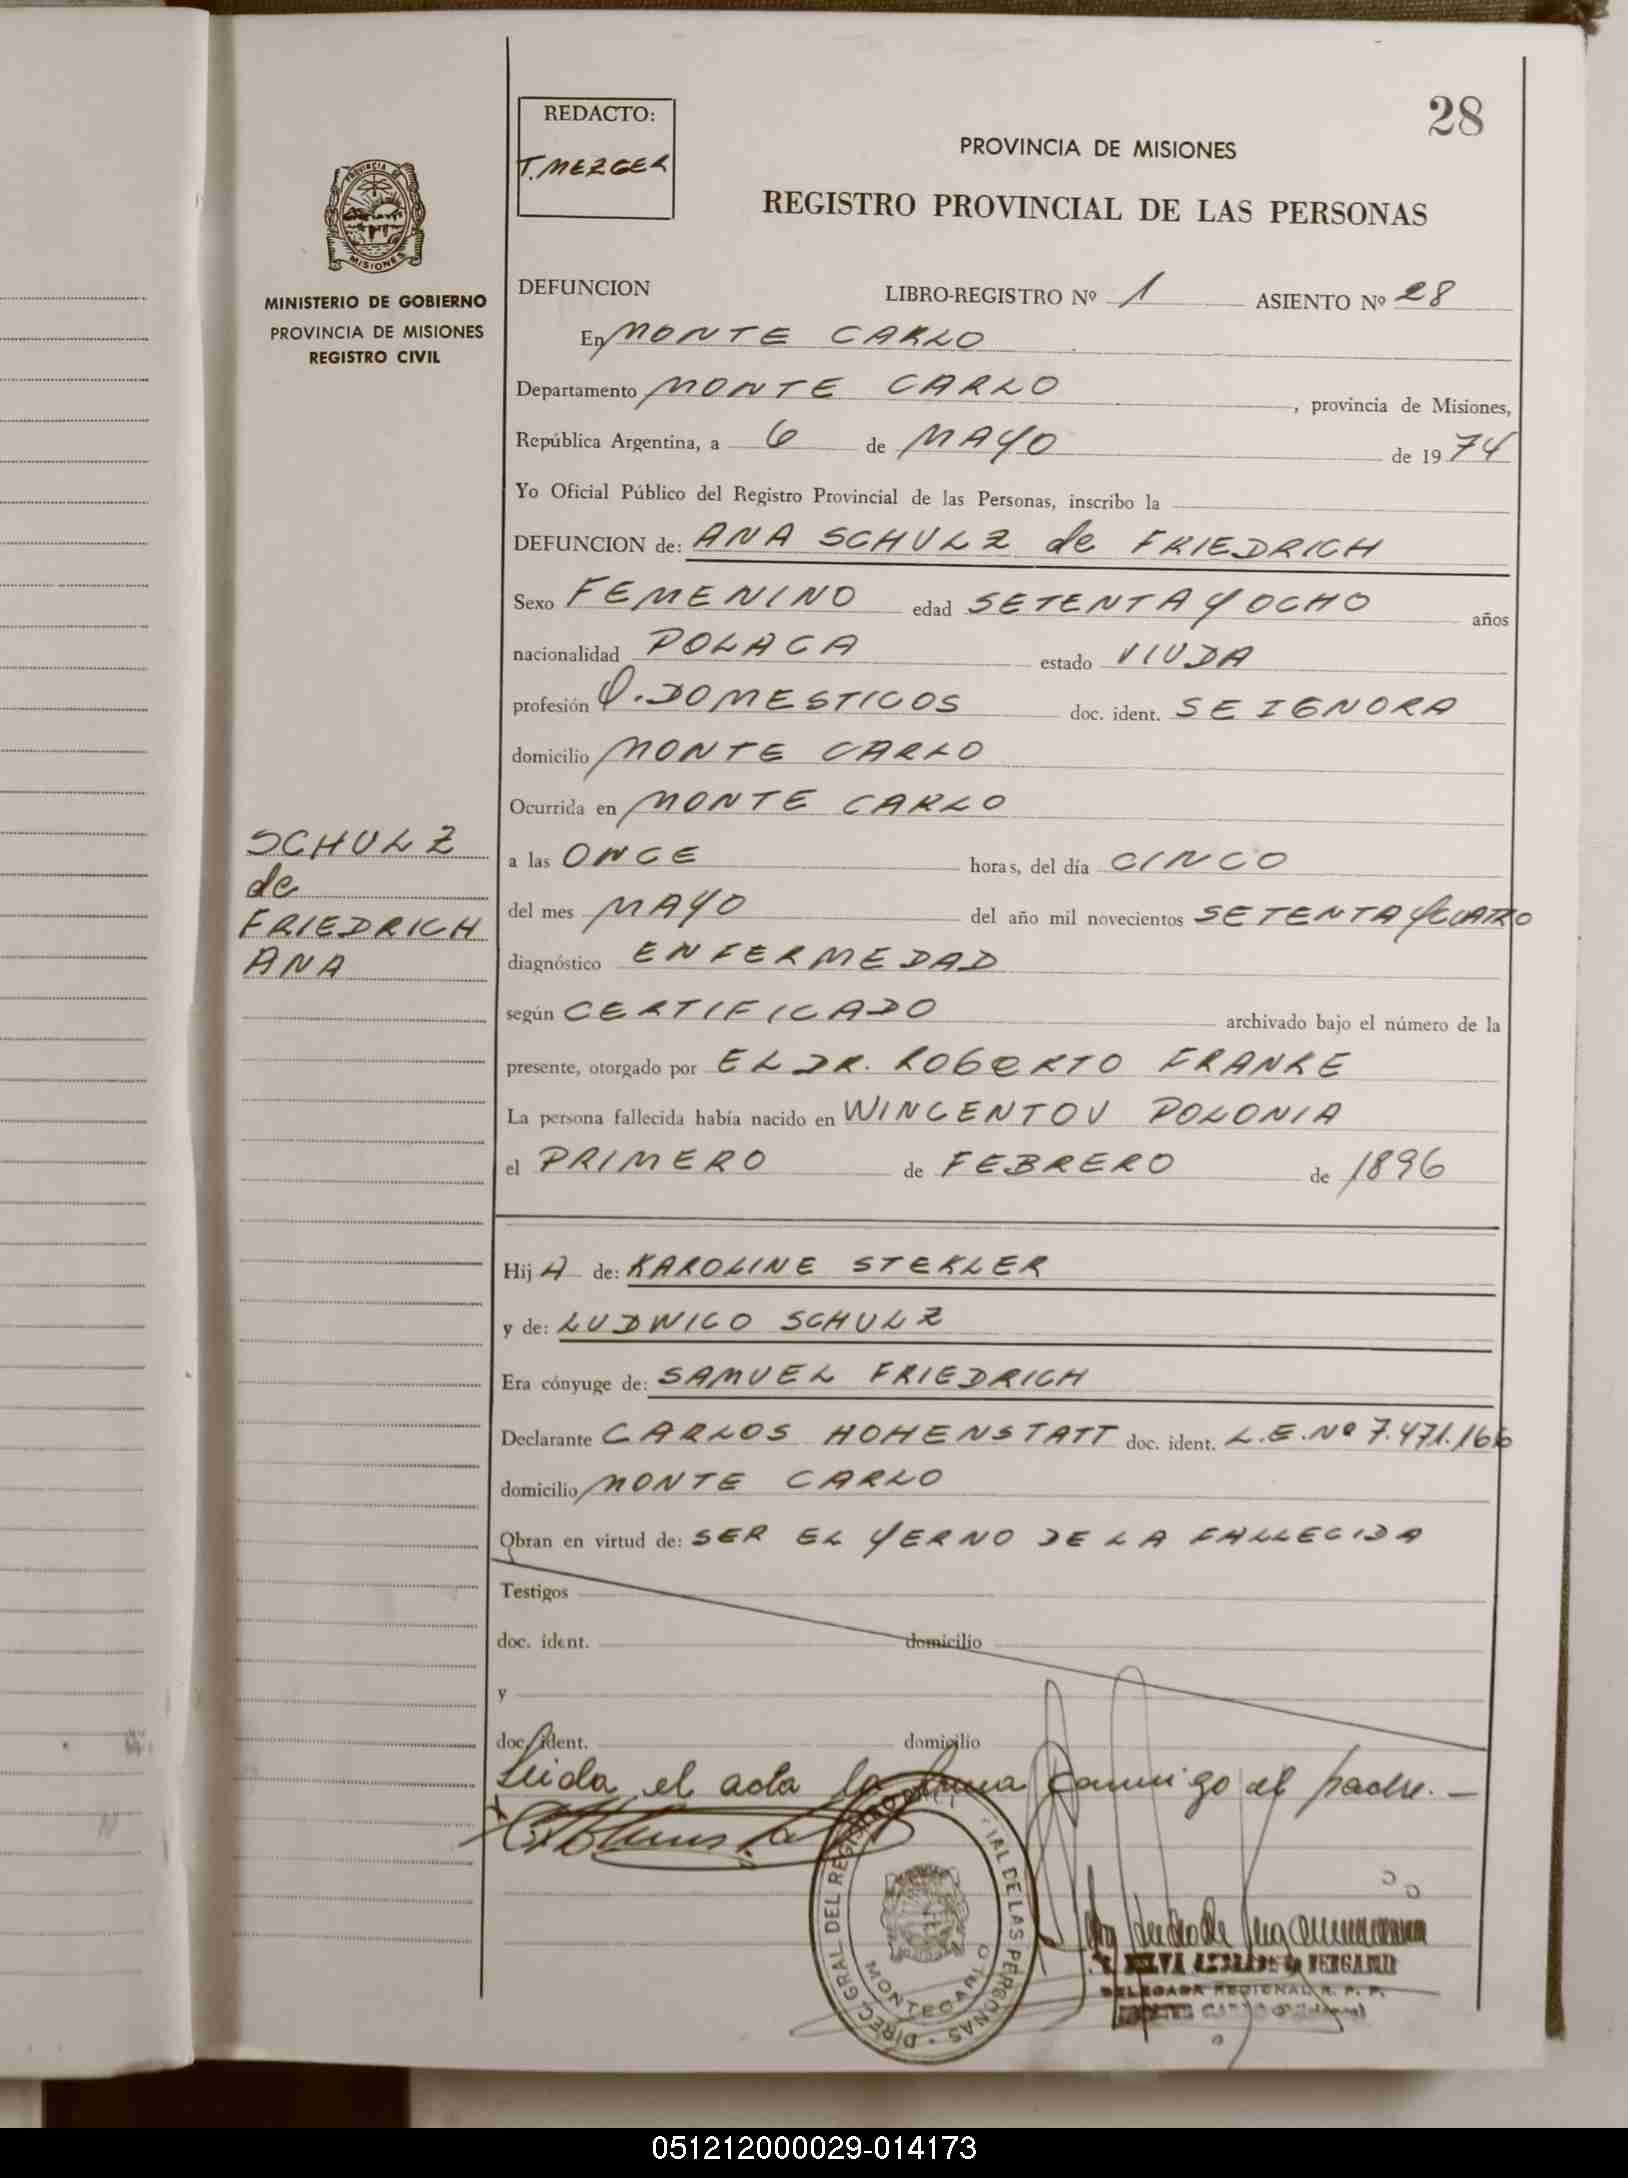 28
REDACTO:
T. MEZGER
PROVINCIA DE MISIONES
REGISTRO PROVINCIAL DE LAS PERSONAS
PROVINCIA DE
MISIONES
MINISTERIO DE GOBIERNO
PROVINCIA DE MISIONES
REGISTRO CIVIL
DEFUNCION LIBRO-REGISTRO Nº 1 ASIENTO Nº 28
En MONTE CARLO
Departamento MONTE CARLO, provincia de Misiones,
República Argentina, a 6 de MAYO de 1974
Yo Oficial Público del Registro Provincial de las Personas, inscribo la
DEFUNCION de: ANA SCHULZ de FRIEDRICH
Sexo FEMENINO edad SETENTA Y OCHO años
nacionalidad POLACA estado VIUDA
profesión Q. DOMESTICOS doc. ident. SE IGNORA
domicilio MONTE CARLO
Ocurrida en MONTE CARLO
SCHULZ
de
FRIEDRICH
ANA
a las ONCE horas, del día CINCO
del mes MAYO del año mil novecientos SETENTA Y CUATRO
diagnóstico ENFERMEDAD
según CERTIFICADO archivado bajo el número de la
presente, otorgado por EL DR. ROBERTO FRANKE
La persona fallecida había nacido en WINCENTOV POLONIA
el PRIMERO de FEBRERO de 1896
Hij A de: KAROLINE STEKLER
y de: LUDWICO SCHULZ
Era cónyuge de: SAMUEL FRIEDRICH
Declarante CARLOS HOHENSTATT doc. ident. L.E. Nº 7.471.166
domicilio MONTE CARLO
Obran en virtud de: SER EL YERNO DE LA FALLECIDA
Testigos
doc. ident. domicilio
y
doc. ident. domicilio
Leida el acta la firma conmigo el padre. —
DIREC. GRAL DEL REGISTRO DE LAS PERSONAS
MONTECARLO
DELEGADA REGIONAL R. P. P.
051212000029-014173